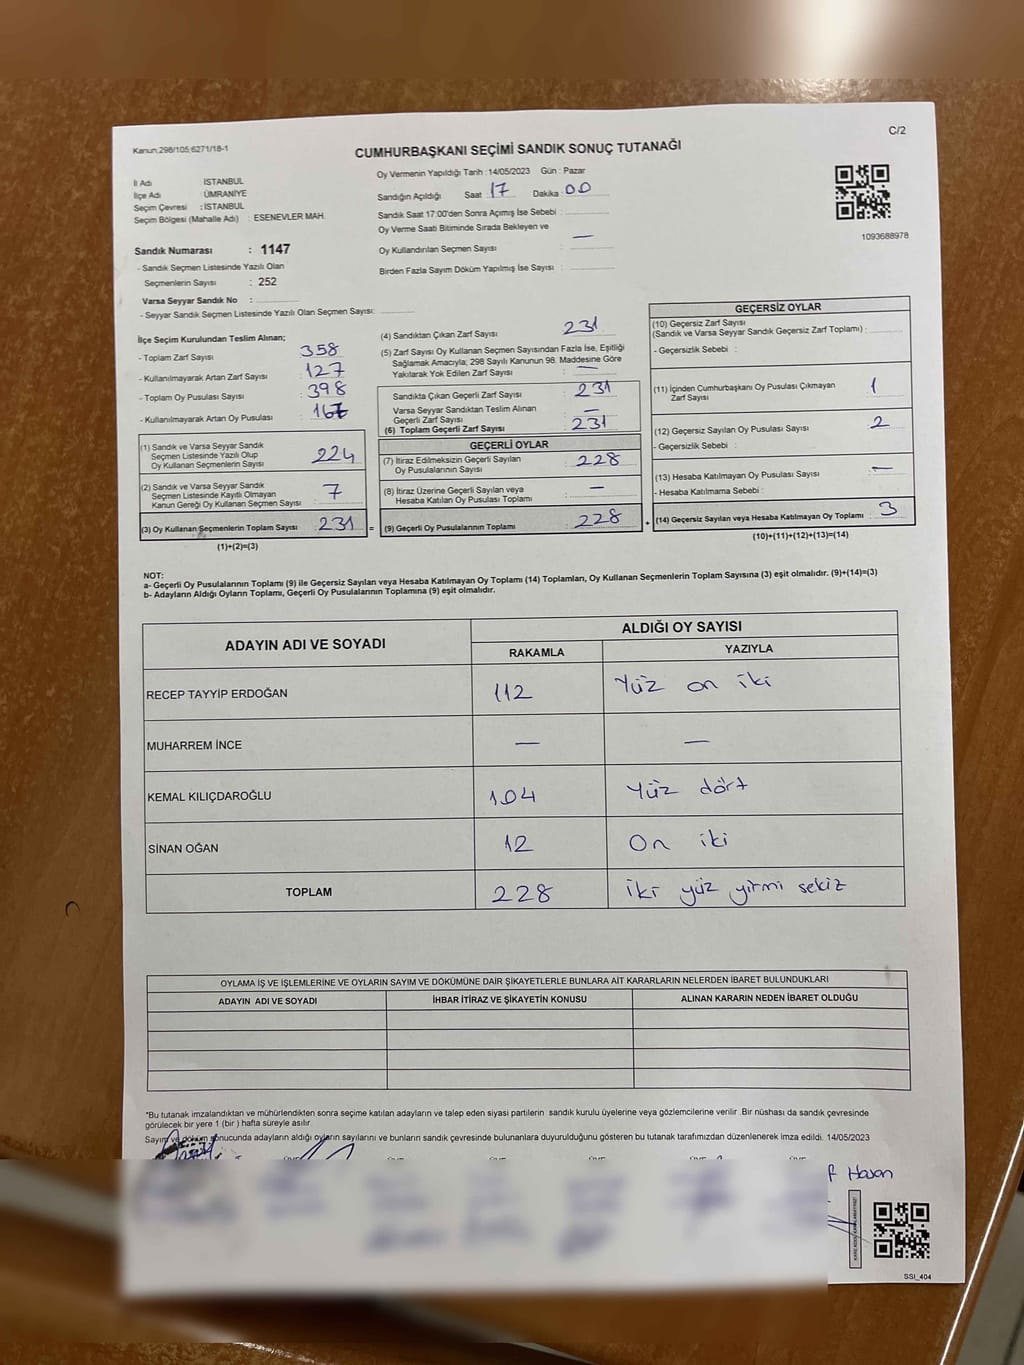 C/2
Kanun;298/105;6271/18-1
CUMHURBAŞKANI SEÇİMİ SANDIK SONUÇ TUTANAĞI
İl Adı : İSTANBUL
İlçe Adı : ÜMRANİYE
Seçim Çevresi : İSTANBUL
Seçim Bölgesi (Mahalle Adı) : ESENEVLER MAH.
Sandık Numarası : 1147
- Sandık Seçmen Listesinde Yazılı Olan
Seçmenlerin Sayısı : 252
Varsa Seyyar Sandık No :
- Seyyar Sandık Seçmen Listesinde Yazılı Olan Seçmen Sayısı:
Oy Vermenin Yapıldığı Tarih :14/05/2023 Gün : Pazar
Sandığın Açıldığı Saat 17 Dakika : 00
Sandık Saat 17:00'den Sonra Açımış İse Sebebi :
Oy Verme Saati Bitiminde Sırada Bekleyen ve
Oy Kullandırılan Seçmen Sayısı : —
Birden Fazla Sayım Döküm Yapılmış İse Sayısı :
1093688978
İlçe Seçim Kurulundan Teslim Alınan;
- Toplam Zarf Sayısı : 358
- Kullanılmayarak Artan Zarf Sayısı : 127
- Toplam Oy Pusulası Sayısı : 398
- Kullanılmayarak Artan Oy Pusulası : 167
(1) Sandık ve Varsa Seyyar Sandık
Seçmen Listesinde Yazılı Olup
Oy Kullanan Seçmenlerin Sayısı : 224
(2) Sandık ve Varsa Seyyar Sandık
Seçmen Listesinde Kayıtlı Olmayan
Kanun Gereği Oy Kullanan Seçmen Sayısı : 7
(3) Oy Kullanan Seçmenlerin Toplam Sayısı : 231 =
(1)+(2)=(3)
(4) Sandıktan Çıkan Zarf Sayısı : 231
(5) Zarf Sayısı Oy Kullanan Seçmen Sayısından Fazla İse, Eşitliği
Sağlamak Amacıyla; 298 Sayılı Kanunun 98. Maddesine Göre
Yakılarak Yok Edilen Zarf Sayısı : —
Sandıkta Çıkan Geçerli Zarf Sayısı : 231
Varsa Seyyar Sandıktan Teslim Alınan
Geçerli Zarf Sayısı : —
(6) Toplam Geçerli Zarf Sayısı : 231
GEÇERLİ OYLAR
(7) İtiraz Edilmeksizin Geçerli Sayılan
Oy Pusulalarının Sayısı : 228
(8) İtiraz Üzerine Geçerli Sayılan veya
Hesaba Katılan Oy Pusulası Toplamı : —
(9) Geçerli Oy Pusulalarının Toplamı : 228 +
GEÇERSİZ OYLAR
(10) Geçersiz Zarf Sayısı
(Sandık ve Varsa Seyyar Sandık Geçersiz Zarf Toplamı) :
- Geçersizlik Sebebi :
(11) İçinden Cumhurbaşkanı Oy Pusulası Çıkmayan
Zarf Sayısı : 1
(12) Geçersiz Sayılan Oy Pusulası Sayısı : 2
- Geçersizlik Sebebi :
(13) Hesaba Katılmayan Oy Pusulası Sayısı : —
- Hesaba Katılmama Sebebi :
(14) Geçersiz Sayılan veya Hesaba Katılmayan Oy Toplamı : 3
(10)+(11)+(12)+(13)=(14)
NOT:
a- Geçerli Oy Pusulalarının Toplamı (9) ile Geçersiz Sayılan veya Hesaba Katılmayan Oy Toplamı (14) Toplamları, Oy Kullanan Seçmenlerin Toplam Sayısına (3) eşit olmalıdır. (9)+(14)=(3)
b- Adayların Aldığı Oyların Toplamı, Geçerli Oy Pusulalarının Toplamına (9) eşit olmalıdır.
ADAYIN ADI VE SOYADI ALDIĞI OY SAYISI
RAKAMLA YAZIYLA
RECEP TAYYİP ERDOĞAN 112 Yüz on iki
MUHARREM İNCE — —
KEMAL KILIÇDAROĞLU 104 Yüz dört
SİNAN OĞAN 12 On iki
TOPLAM 228 iki yüz yirmi sekiz
OYLAMA İŞ VE İŞLEMLERİNE VE OYLARIN SAYIM VE DÖKÜMÜNE DAİR ŞİKAYETLERLE BUNLARA AİT KARARLARIN NELERDEN İBARET BULUNDUKLARI
ADAYIN ADI VE SOYADI İHBAR İTİRAZ VE ŞİKAYETİN KONUSU ALINAN KARARIN NEDEN İBARET OLDUĞU
*Bu tutanak imzalandıktan ve mühürlendikten sonra seçime katılan adayların ve talep eden siyasi partilerin sandık kurulu üyelerine veya gözlemcilerine verilir .Bir nüshası da sandık çevresinde
görülecek bir yere 1 (bir ) hafta süreyle asılır
Sayım ve döküm sonucunda adayların aldığı oyların sayılarını ve bunların sandık çevresinde bulunanlara duyurulduğunu gösteren bu tutanak tarafımızdan düzenlenerek imza edildi. 14/05/2023
Hasan
SSI_404